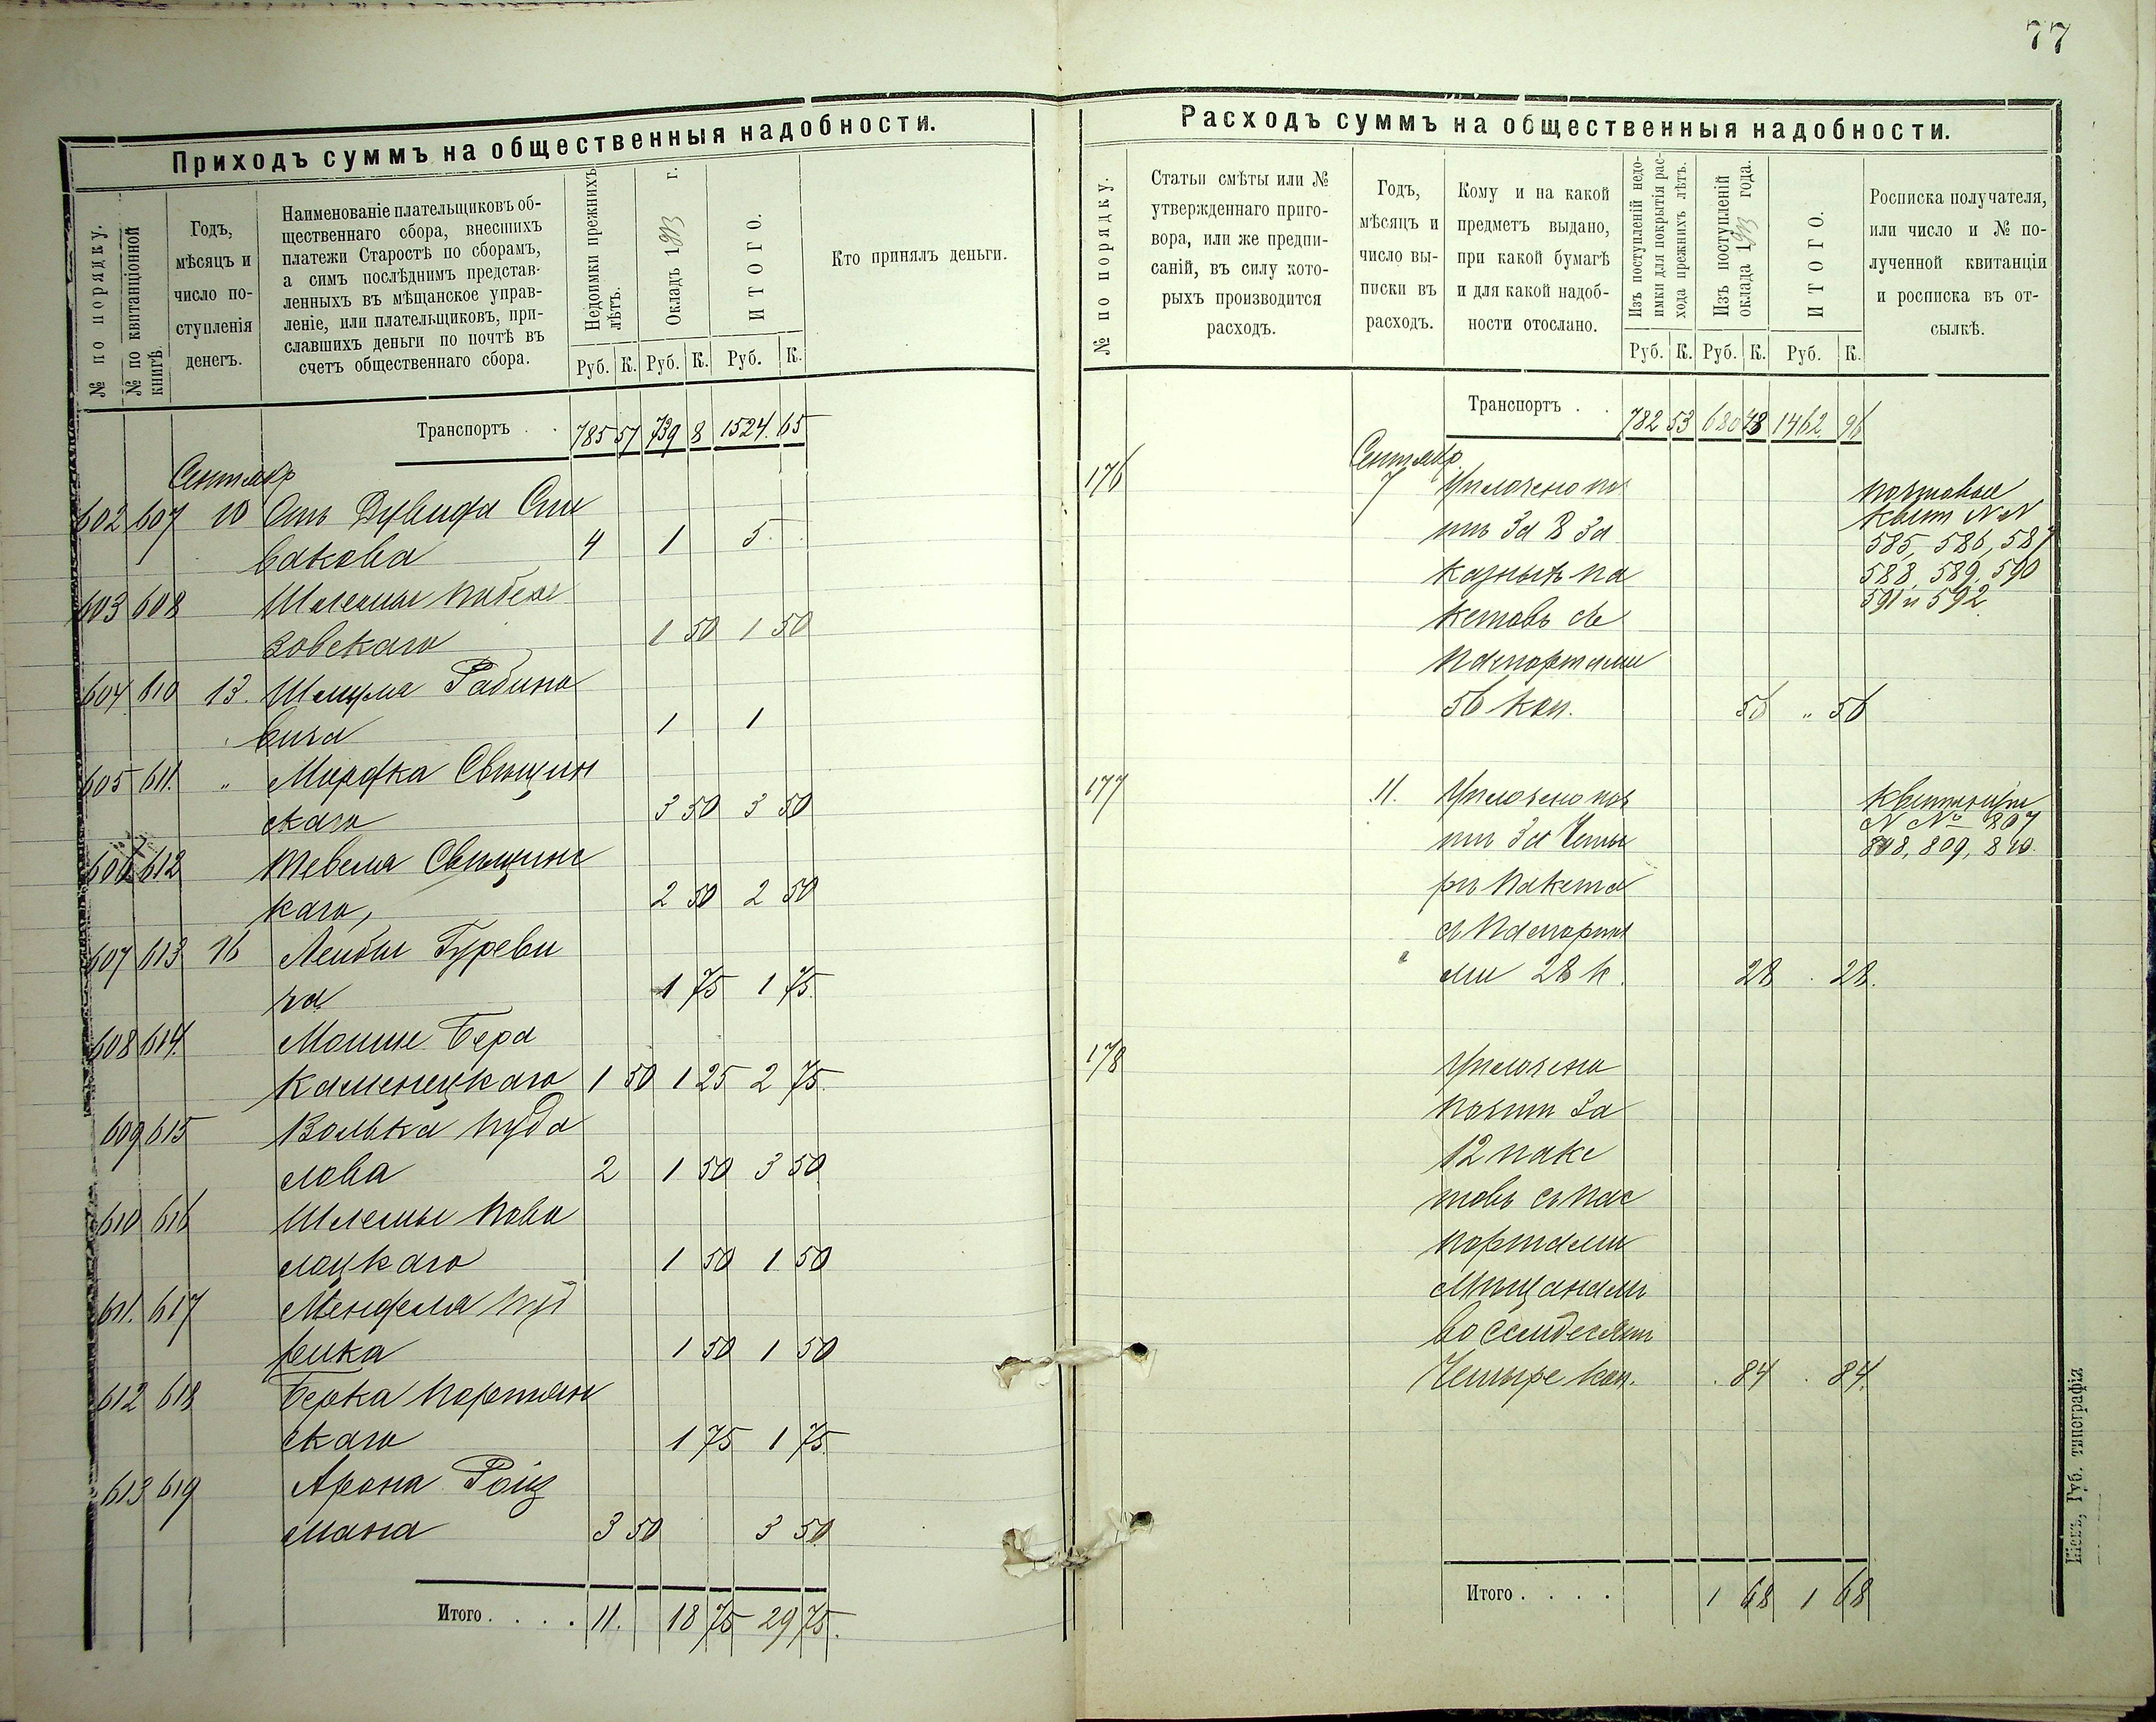 77
Приходъ суммъ на общественныя надобности.
№ по порядку.
№ по квитанціонной
книгѣ.
Годъ,
мѣсяцъ и
число по-
ступленія
денегъ.
Наименованіе плательщиковъ об-
щественнаго сбора, внесшихъ
платежи Старостѣ по сборамъ,
а симъ послѣднимъ представ-
ленныхъ въ мѣщанское управ-
леніе, или плательщиковъ, при-
славшихъ деньги по почтѣ въ
счетъ общественнаго сбора.
Недоимки прежнихъ
лѣтъ.
Окладъ 1913 г.
ИТОГО.
Кто принялъ деньги.
Руб. К. Руб. К. Руб. К.
Транспортъ . . 785 57 739 8 1524. 65
Сентябр
602 607 10 Отъ Дувида Спи
вакова 4 1 5
603 608 Шлемы
зовскаго 1 50 1 50
604 610 13. Шлума Рабино
вича 1 1
605 611. " Мордка Свищин
скаго 3 50 3 50
606 612 Тевеля Свищинс
каго, 2 50 2 50
607 613 16 Лейбы Гуреви
ча 1 75 1 75.
608 614. Мошки Бера
Каменецкаго 1 50 1 25 2 75.
609 615 Волька
лова 2 1 50 3 50
610 616 Шлемы Пово
лоцкаго 1 50 1 50
611. 617 Менделя
вика 1 50 1 50
612 618 Берка Портян
скаго 1 75 1 75.
613 619 Арона Ройз
мана 3 50 3 50
Итого . . . . 11. 18 75 29 75.
Расходъ суммъ на общественныя надобности.
№ по порядку.
Статьи смѣты или №
утвержденнаго приго-
вора, или же предпи-
саній, въ силу кото-
рыхъ производится
расходъ.
Годъ,
мѣсяцъ и
число вы-
писки въ
расходъ.
Кому и на какой
предметъ выдано,
при какой бумагѣ
и для какой надоб-
ности отослано.
Изъ поступленій недо-
имки для покрытія рас-
хода прежнихъ лѣтъ.
Изъ поступленій
оклада 1913 года.
ИТОГО.
Росписка получателя,
или число и № по-
лученной квитанціи
и росписка въ от-
сылкѣ.
Руб. К. Руб. К. Руб. К.
Транспортъ . . 782 53 680 43 1462 96
Сентябр.
176 7 Уплочено по
чтѣ за 8 за
казныхъ па
кетовъ съ
паспортами
56 коп. 56 " 56
почтовыя
квит NN
585, 586, 587
588, 589, 590
591 и 592
177 11. Уплочено поч
тѣ за четы
ре пакета
съ паспорта
ми 28 к. 28 . 28.
Квитанціи
N № 807
808, 809, 810.
178 Уплочено
почтѣ за
12 паке
товъ съ пас
портами
Мѣщанамъ
восемдесятъ
Четыре коп. . 84 . 84.
Итого . . . . 1 68 1 68
Кіевъ, Губ. типографія